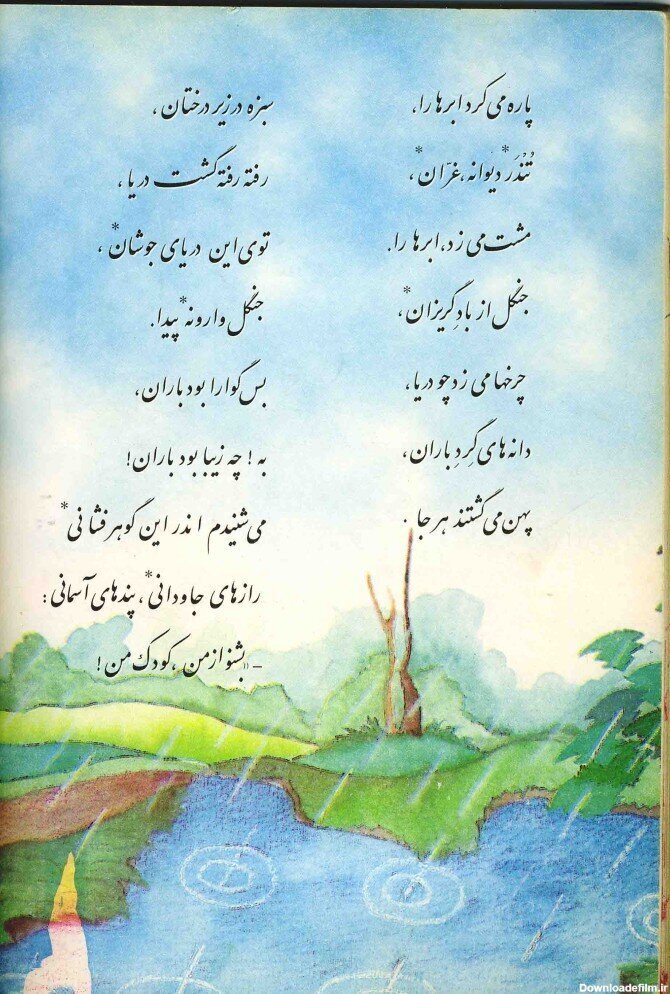 پاره می کرد ابرها را،
تُنْدَر* دیوانه، غرّان*،
مشت می زد، ابرها را.
جنگل از بادِ گریزان*،
چرخها می زد چو دریا،
دانه های گِردِ باران،
پهن می گشتند هر جا.
سبزه در زیر درختان،
رفته رفته گشت دریا،
توی این دریای جوشان*،
جنگل وارونه* پیدا.
بس گوارا بود باران،
به! چه زیبا بود باران!
می شنیدم اندر این گوهر فشانی*
رازهای جاودانی*، پندهای آسمانی:
– «بشنو از من، کودک من!
Downloadefilm.ir